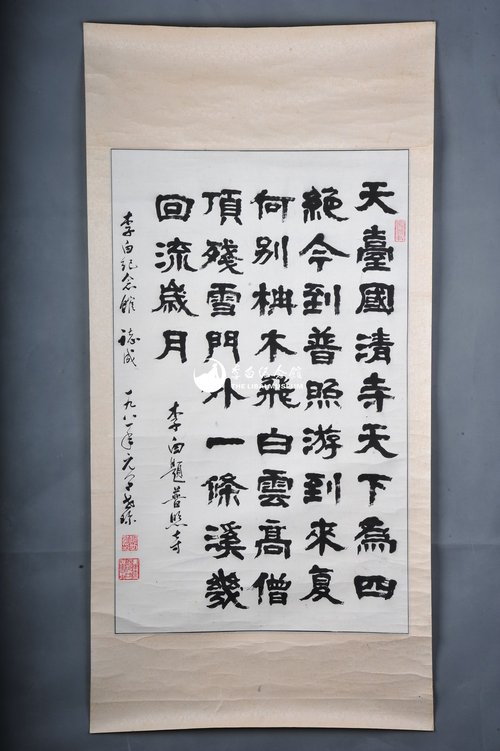 天臺國清寺天下為四
絕今到普照游到來復
何別枏木飛白雲高僧
頂殘雪門外一條溪幾
回流歲月
李白題普照寺
李白纪念館
一九八一年元
李白纪念館
THE LIBAI MUSEUM